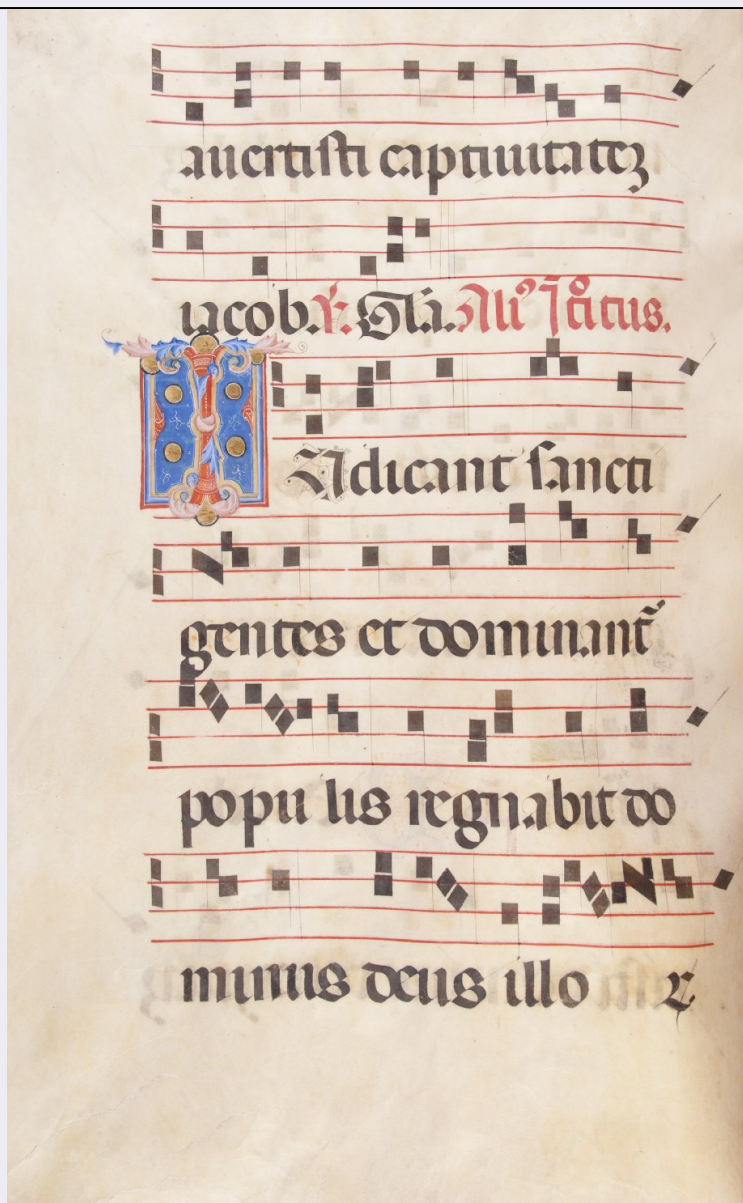 auertisti captiuitatez
iacob. V. Gl'a. Ali' Itroitus.
IUdicant sancti
gentes et dominant
popu lis regnabit do
minus deus illo r